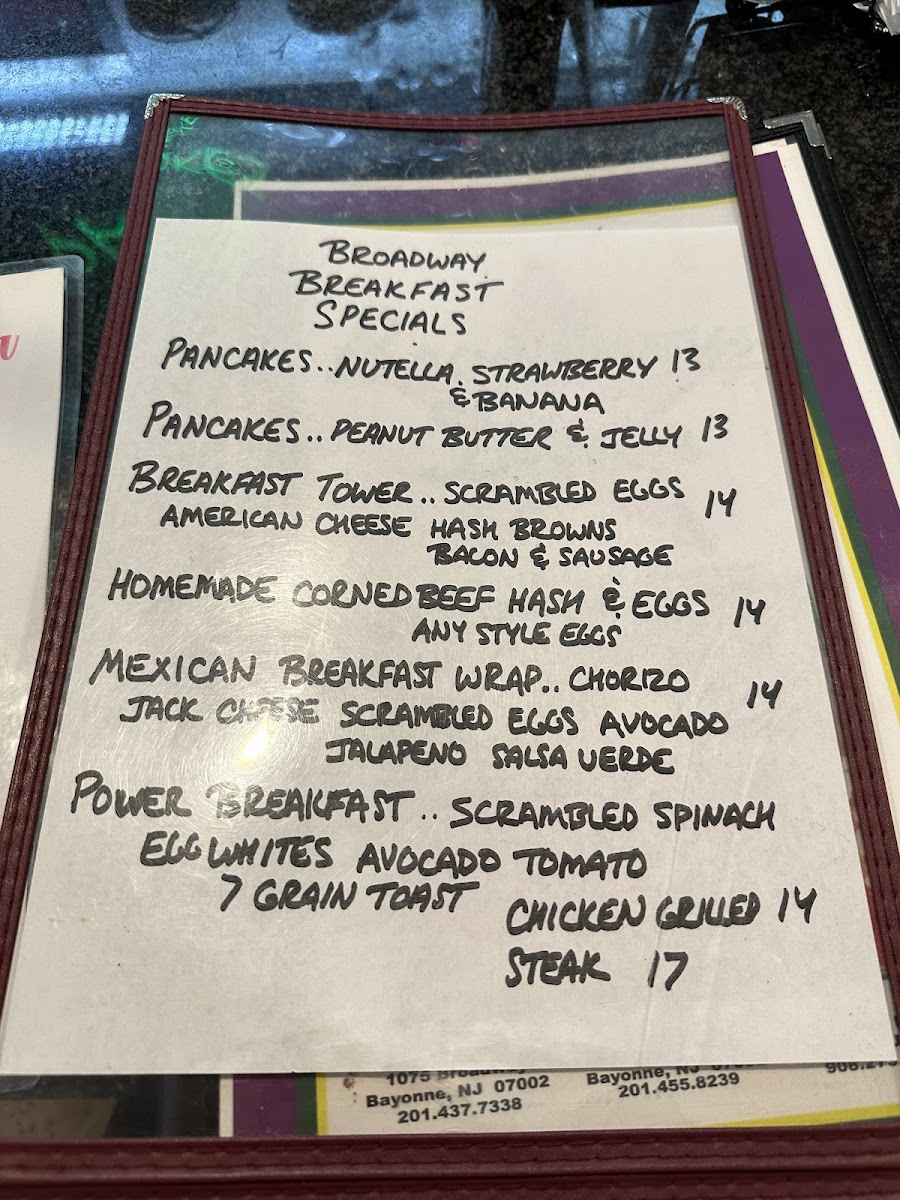 BROADWAY
BREAKFAST
SPECIALS
PANCAKES..NUTELLA. STRAWBERRY 13
& BANANA
PANCAKES.. PEANUT BUTTER & JELLY 13
BREAKFAST TOWER.. SCRAMBLED EGGS 14
AMERICAN CHEESE HASH BROWNS
BACON & SAUSAGE
HOMEMADE CORNED BEEF HASH & EGGS 14
ANY STYLE EGGS
MEXICAN BREAKFAST WRAP.. CHORIZO 14
JACK CHEESE SCRAMBLED EGGS AVOCADO
JALAPENO SALSA VERDE
POWER BREAKFAST.. SCRAMBLED SPINACH
EGG WHITES AVOCADO TOMATO
7 GRAIN TOAST
CHICKEN GRILLED 14
STEAK 17
1075 Broadway
Bayonne, NJ 07002
201.437.7338
Bayonne, NJ
201.455.8239